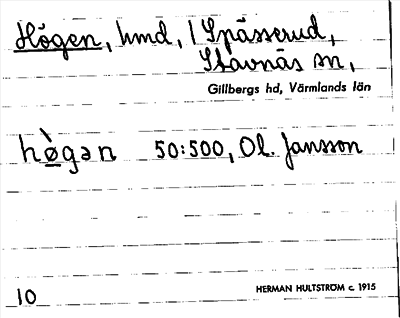 Högen, hmd, 1 Spässerud,
Stavnäs sn,
Gillbergs hd, Värmlands län
hø̀gən 50:500, Ol. Jansson
10 HERMAN HULTSTRÖM c. 1915